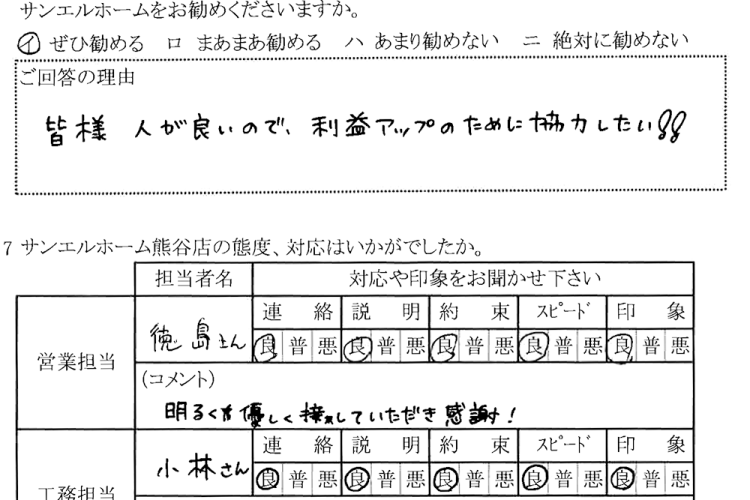 サンエルホームをお勧めくださいますか。
イ ぜひ勧める ロ まあまあ勧める ハ あまり勧めない ニ 絶対に勧めない
ご回答の理由
皆様 人が良いので、利益アップのために協力したい!!
7 サンエルホーム熊谷店の態度、対応はいかがでしたか。
担当者名 対応や印象をお聞かせ下さい
営業担当 徳島さん
連絡 説明 約束 スピード 印象
良 普 悪 良 普 悪 良 普 悪 良 普 悪 良 普 悪
(コメント)
明るく 優しく接していただき感謝!
工務担当 小林さん
連絡 説明 約束 スピード 印象
良 普 悪 良 普 悪 良 普 悪 良 普 悪 良 普 悪